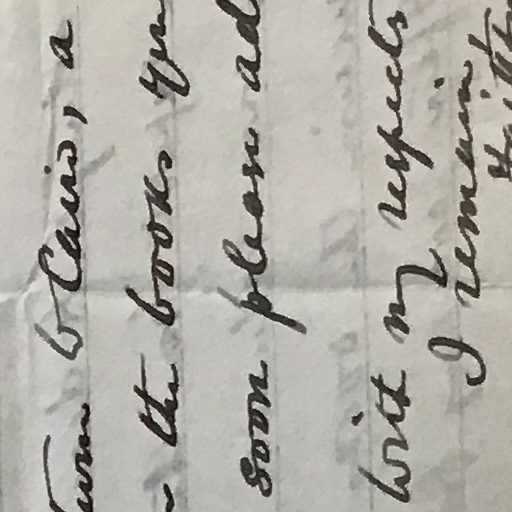 turn to Cairo, a
the books you
soon please ad
With my respects
I remain,
Faithfu